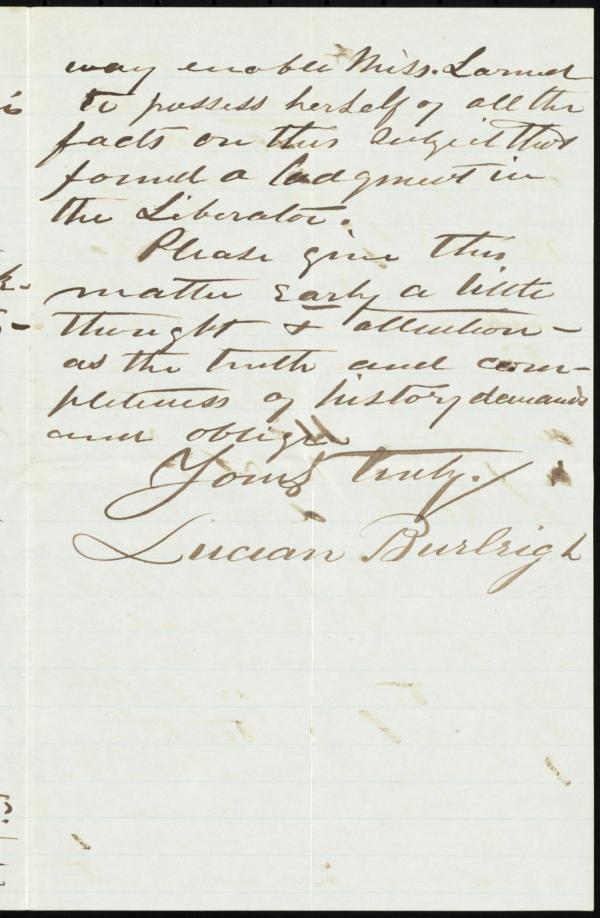 way enable Miss. Larned
to possess herself of all the
facts on this subject that
found a lodgment in
the Liberator.
Please give this
matter early a little
thought & attention -
as the truth and com-
pleteness of history demands
and oblige
Yours truly.
Lucian Burleigh